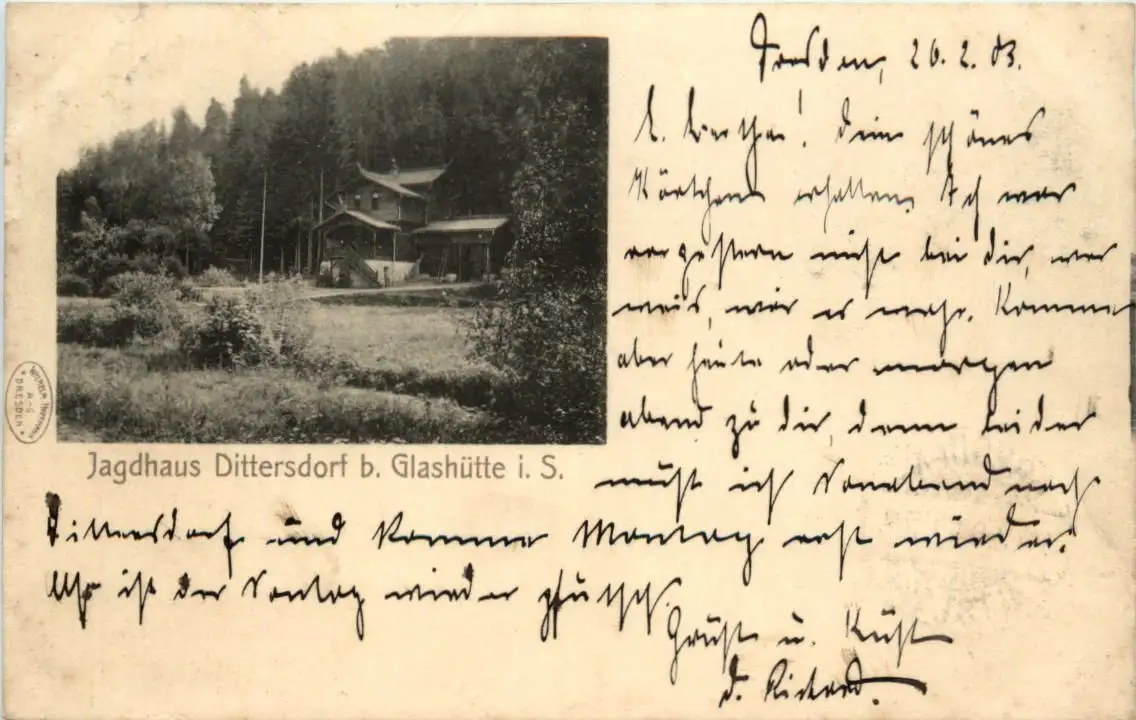 Dresden, 26.2.03.
L. Bertha! Dein schönes
Kärtchen erhalten. Ich war
vorgestern nicht bei Dir, wer
weis, wär es mehr. Komme
aber heute oder morgen
abend zu dir, denn leider
muß ich Sonnabend nach
Dittersdorf und komme Montag erst wieder.
ist der Sontag wieder pfutsch.
Grüßt u. Küßt
d. Richard.
Jagdhaus Dittersdorf b. Glashütte i. S.
DRESDEN
A-G